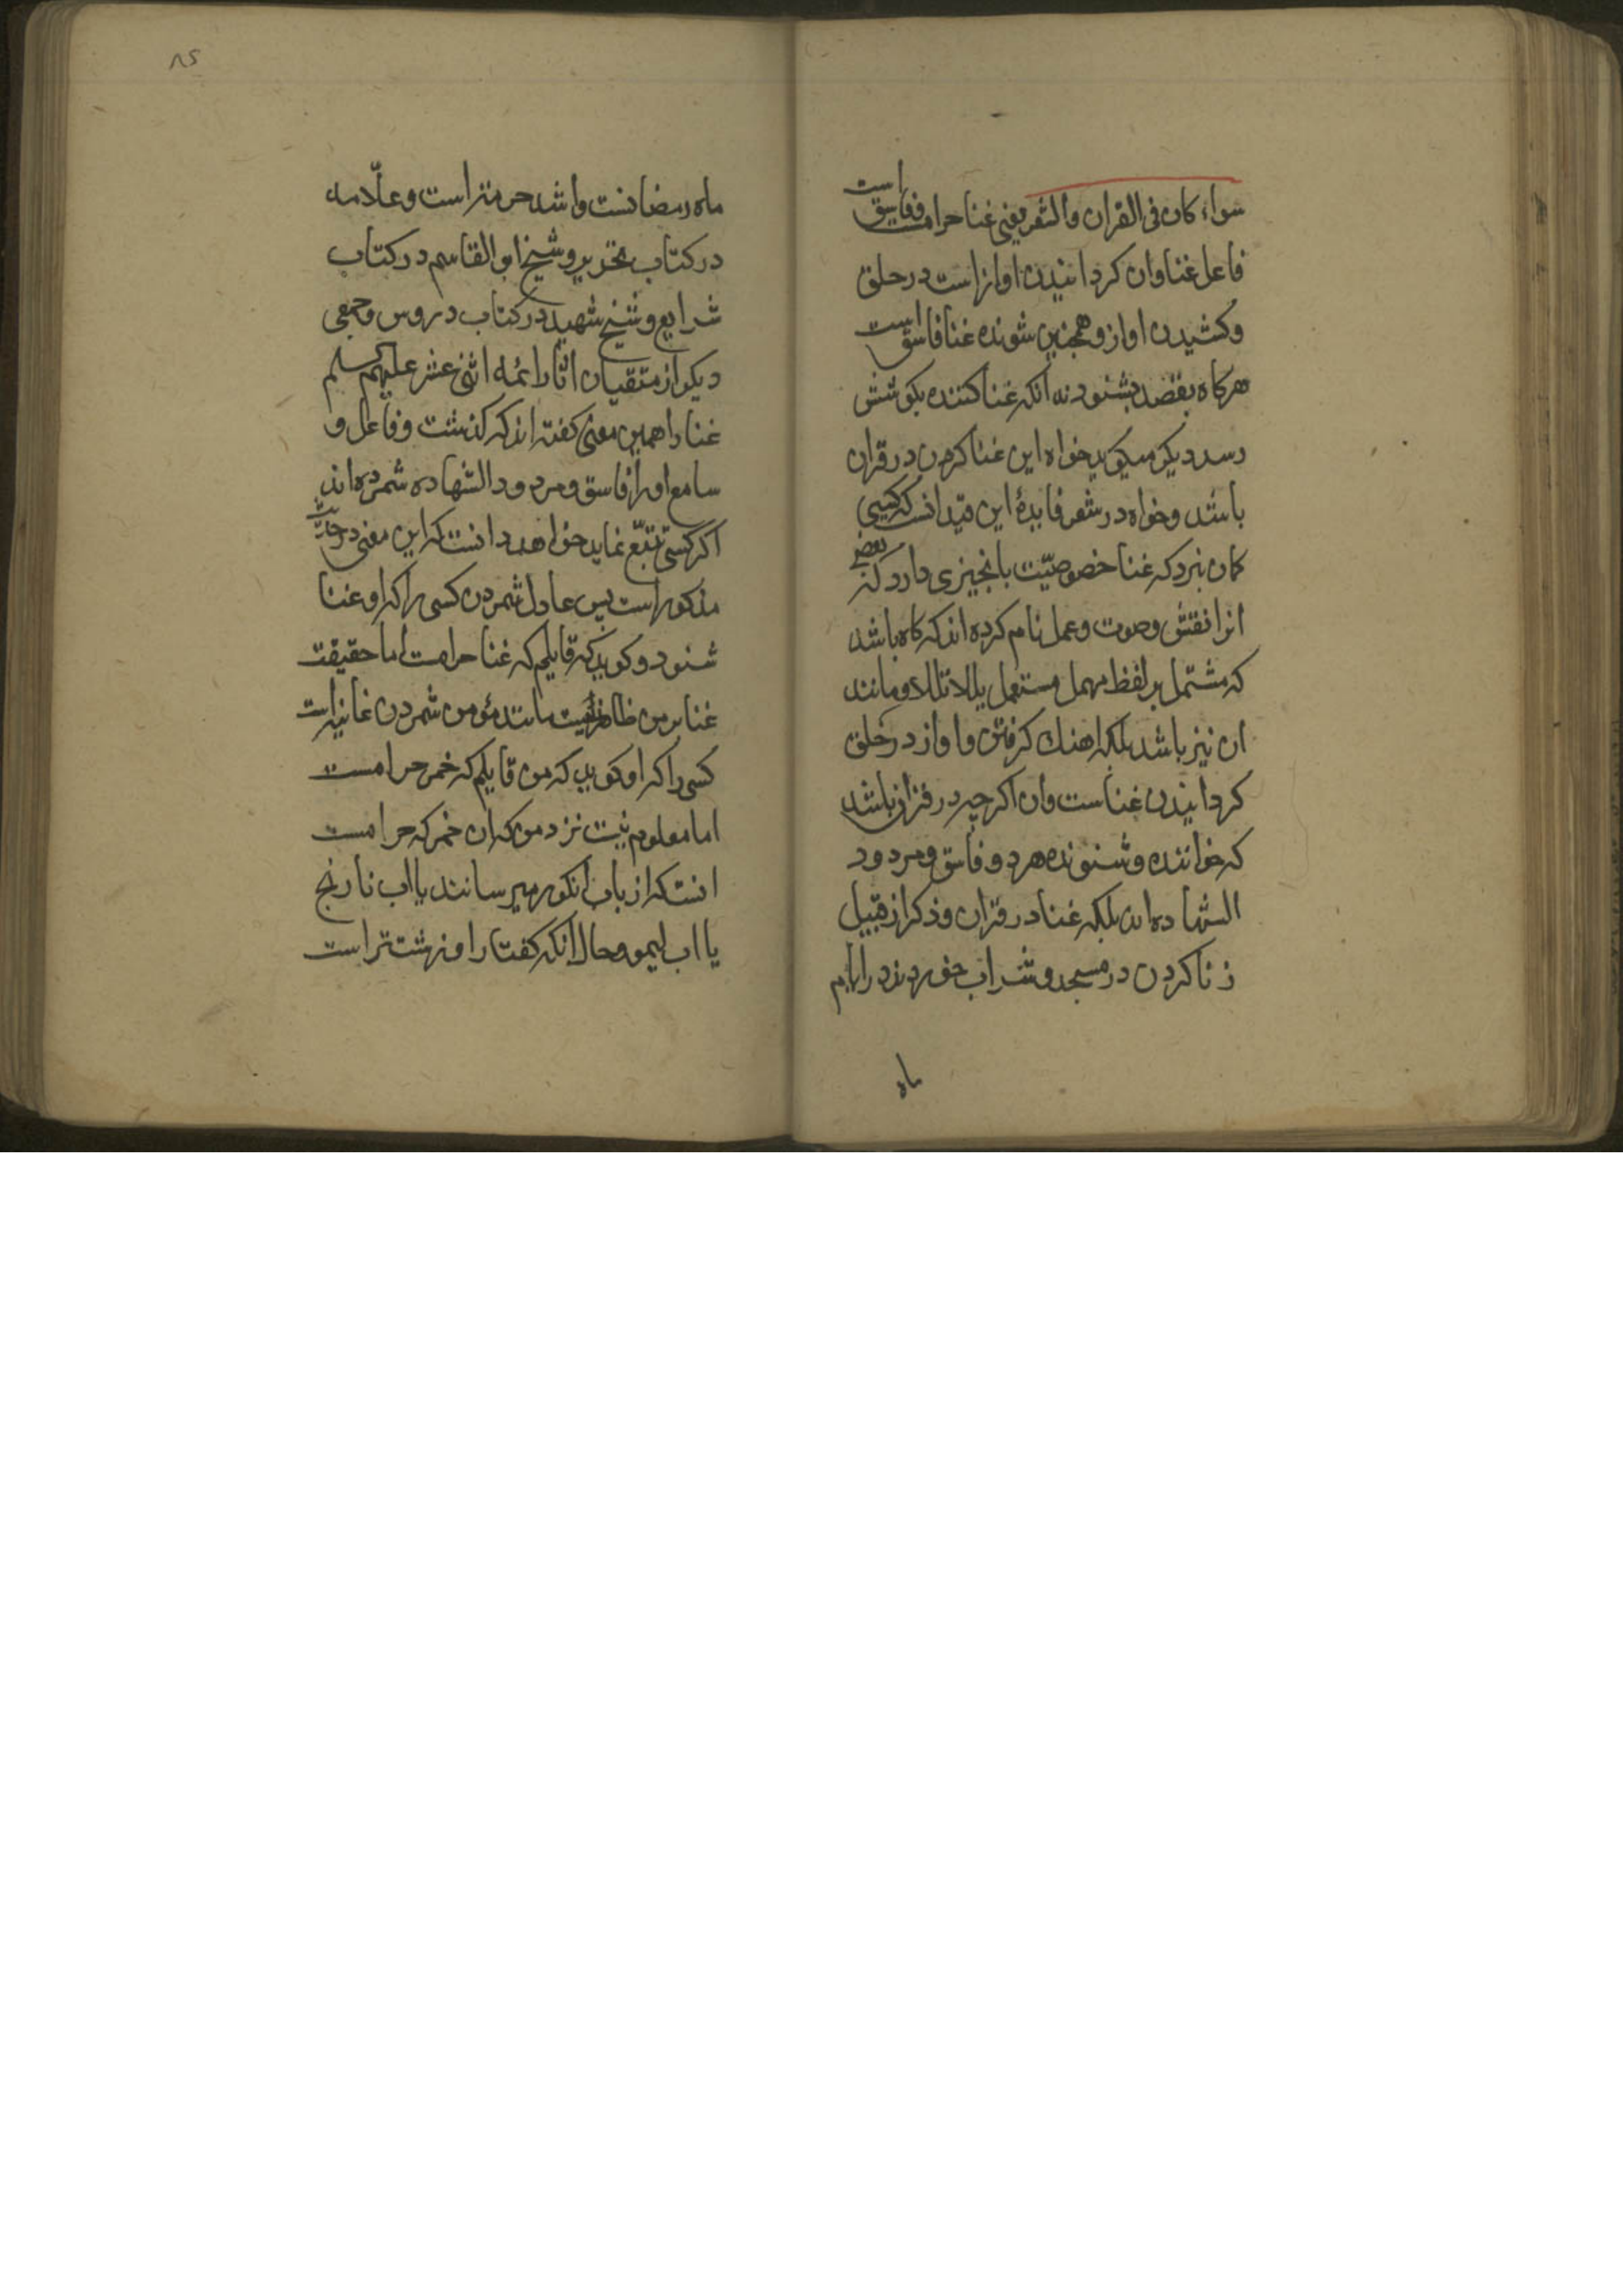 سواء کان فی القران والشعر یعنی غنا حرامست و فاسق است
فاعل غنا و ان کردانیدن اوازاست در حلق
و کشیدن اواز و همچنین شنونده غنا فاسق است
هرکاه بقصد بشنود نه انکه غنا کننده بکوشش
رسد دیکر میکوید خواه این غنا کردن در قران
باشد و خواه در شعر فایدهٔ این قید انست که کسی
کمان نبرد که غنا خصوصیّت بانچیزی دارد که بعضی
انرا نقش و صوت و عمل نام کرده اند که کاه باشد
که مشتمل بر لفظ مهمل مستعمل یللا تللا و مانند
ان نیز باشد بلکه اهنك کرفتن و اواز در حلق
کردانیدن غناست و ان اکرچه در قران باشد
که خواننده و شنونده هر دو فاسق و مردود
الشهاده اند بلکه غنا در قران و ذکر از قبیل
زنا کردن در مسجد و شراب خوردن در ایام
ماه
۸۵
ماه رمضانست و اشد حرمتر است و علّامه
در کتاب تحریر و شیخ ابو القاسم در کتاب
شرایع و شیخ شهید در کتاب دروس و جمعی
دیکر از متقیان اثار ائمه اثنی عشر علیهم السلم
غنا را همین معنی کفته اند که کذشت و فاعل و
سامع او را فاسق و مردود الشهاده شمرده اند
اکر کسی تتبّع نماید خواهد دانست که این معنی در
مذکور است پس عادل شمردن کسی را که او غنا
شنود و کوید که قایلم که غنا حرامست اما حقیقت
غنا بر من ظاهر نیست مانند مؤمن شمردن غانیه است
کسی را که او کوید که من قایلم که خمر حرامست
اما معلوم نیست نزد من که ان خمر که حرامست
انست که از باب انکور میرسانند یا اب نارنج
یا اب لیمو و حال انکه کفتار او زشت تر است